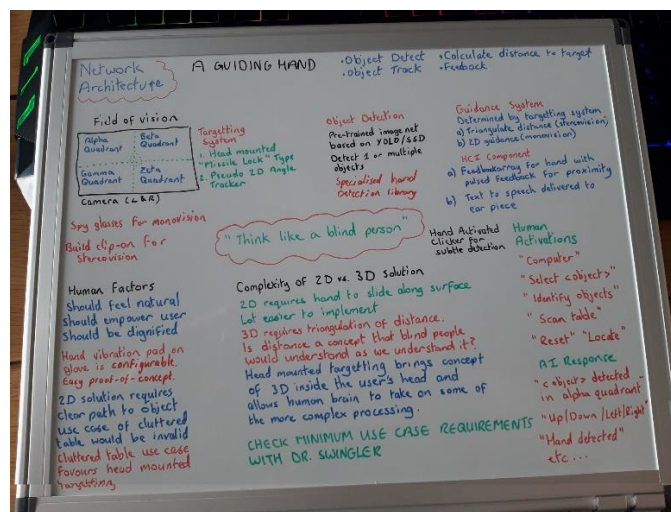 Network
Architecture
A GUIDING HAND
• Object Detect
• Object Track
• Calculate distance to target
• Feedback
Field of vision
Alpha
Quadrant
Beta
Quadrant
Gamma
Quadrant
Zeta
Quadrant
Camera (L&R)
Targetting
System
1. Head mounted
"Missile Lock" Type
2. Pseudo 2D Angle
Tracker
Object Detection
Pre-trained image net
based on YOLO/SSD
Detect 1 or multiple
objects
Specialised hand
Detection library
Guidance System
Determined by targetting system
a) Triangulate distance (stereovision)
b) 2D guidance (monovision)
HCI Component
a) Feedback array for hand with
pulsed feedback for proximity
b) Text to speech delivered to
ear piece
Spy glasses for monovision
Build clip-on for
Stereovision
"Think like a blind person"
Hand Activated
Clicker for
subtle detection
Human
Activations
"Computer"
"Select <object>"
"Identify objects"
"Scan table"
"Reset" "Locate"
AI Response
"<object> detected
in alpha quadrant"
"Up/Down/Left/Right"
"Hand detected"
etc...
Human Factors
Should feel natural
Should empower user
Should be dignified
Hand vibration pad on
glove is configurable.
Easy proof-of-concept.
2D solution requires
clear path to object
use case of cluttered
table would be invalid
Cluttered table use case
favours head mounted
targetting
Complexity of 2D vs. 3D solution
2D requires hand to slide along surface
Lot easier to implement
3D requires triangulation of distance.
Is distance a concept that blind people
would understand as we understand it?
Head mounted targetting brings concept
of 3D inside the user's head and
allows human brain to take on some of
the more complex processing.
CHECK MINIMUM USE CASE REQUIREMENTS
WITH DR. SWINGLER